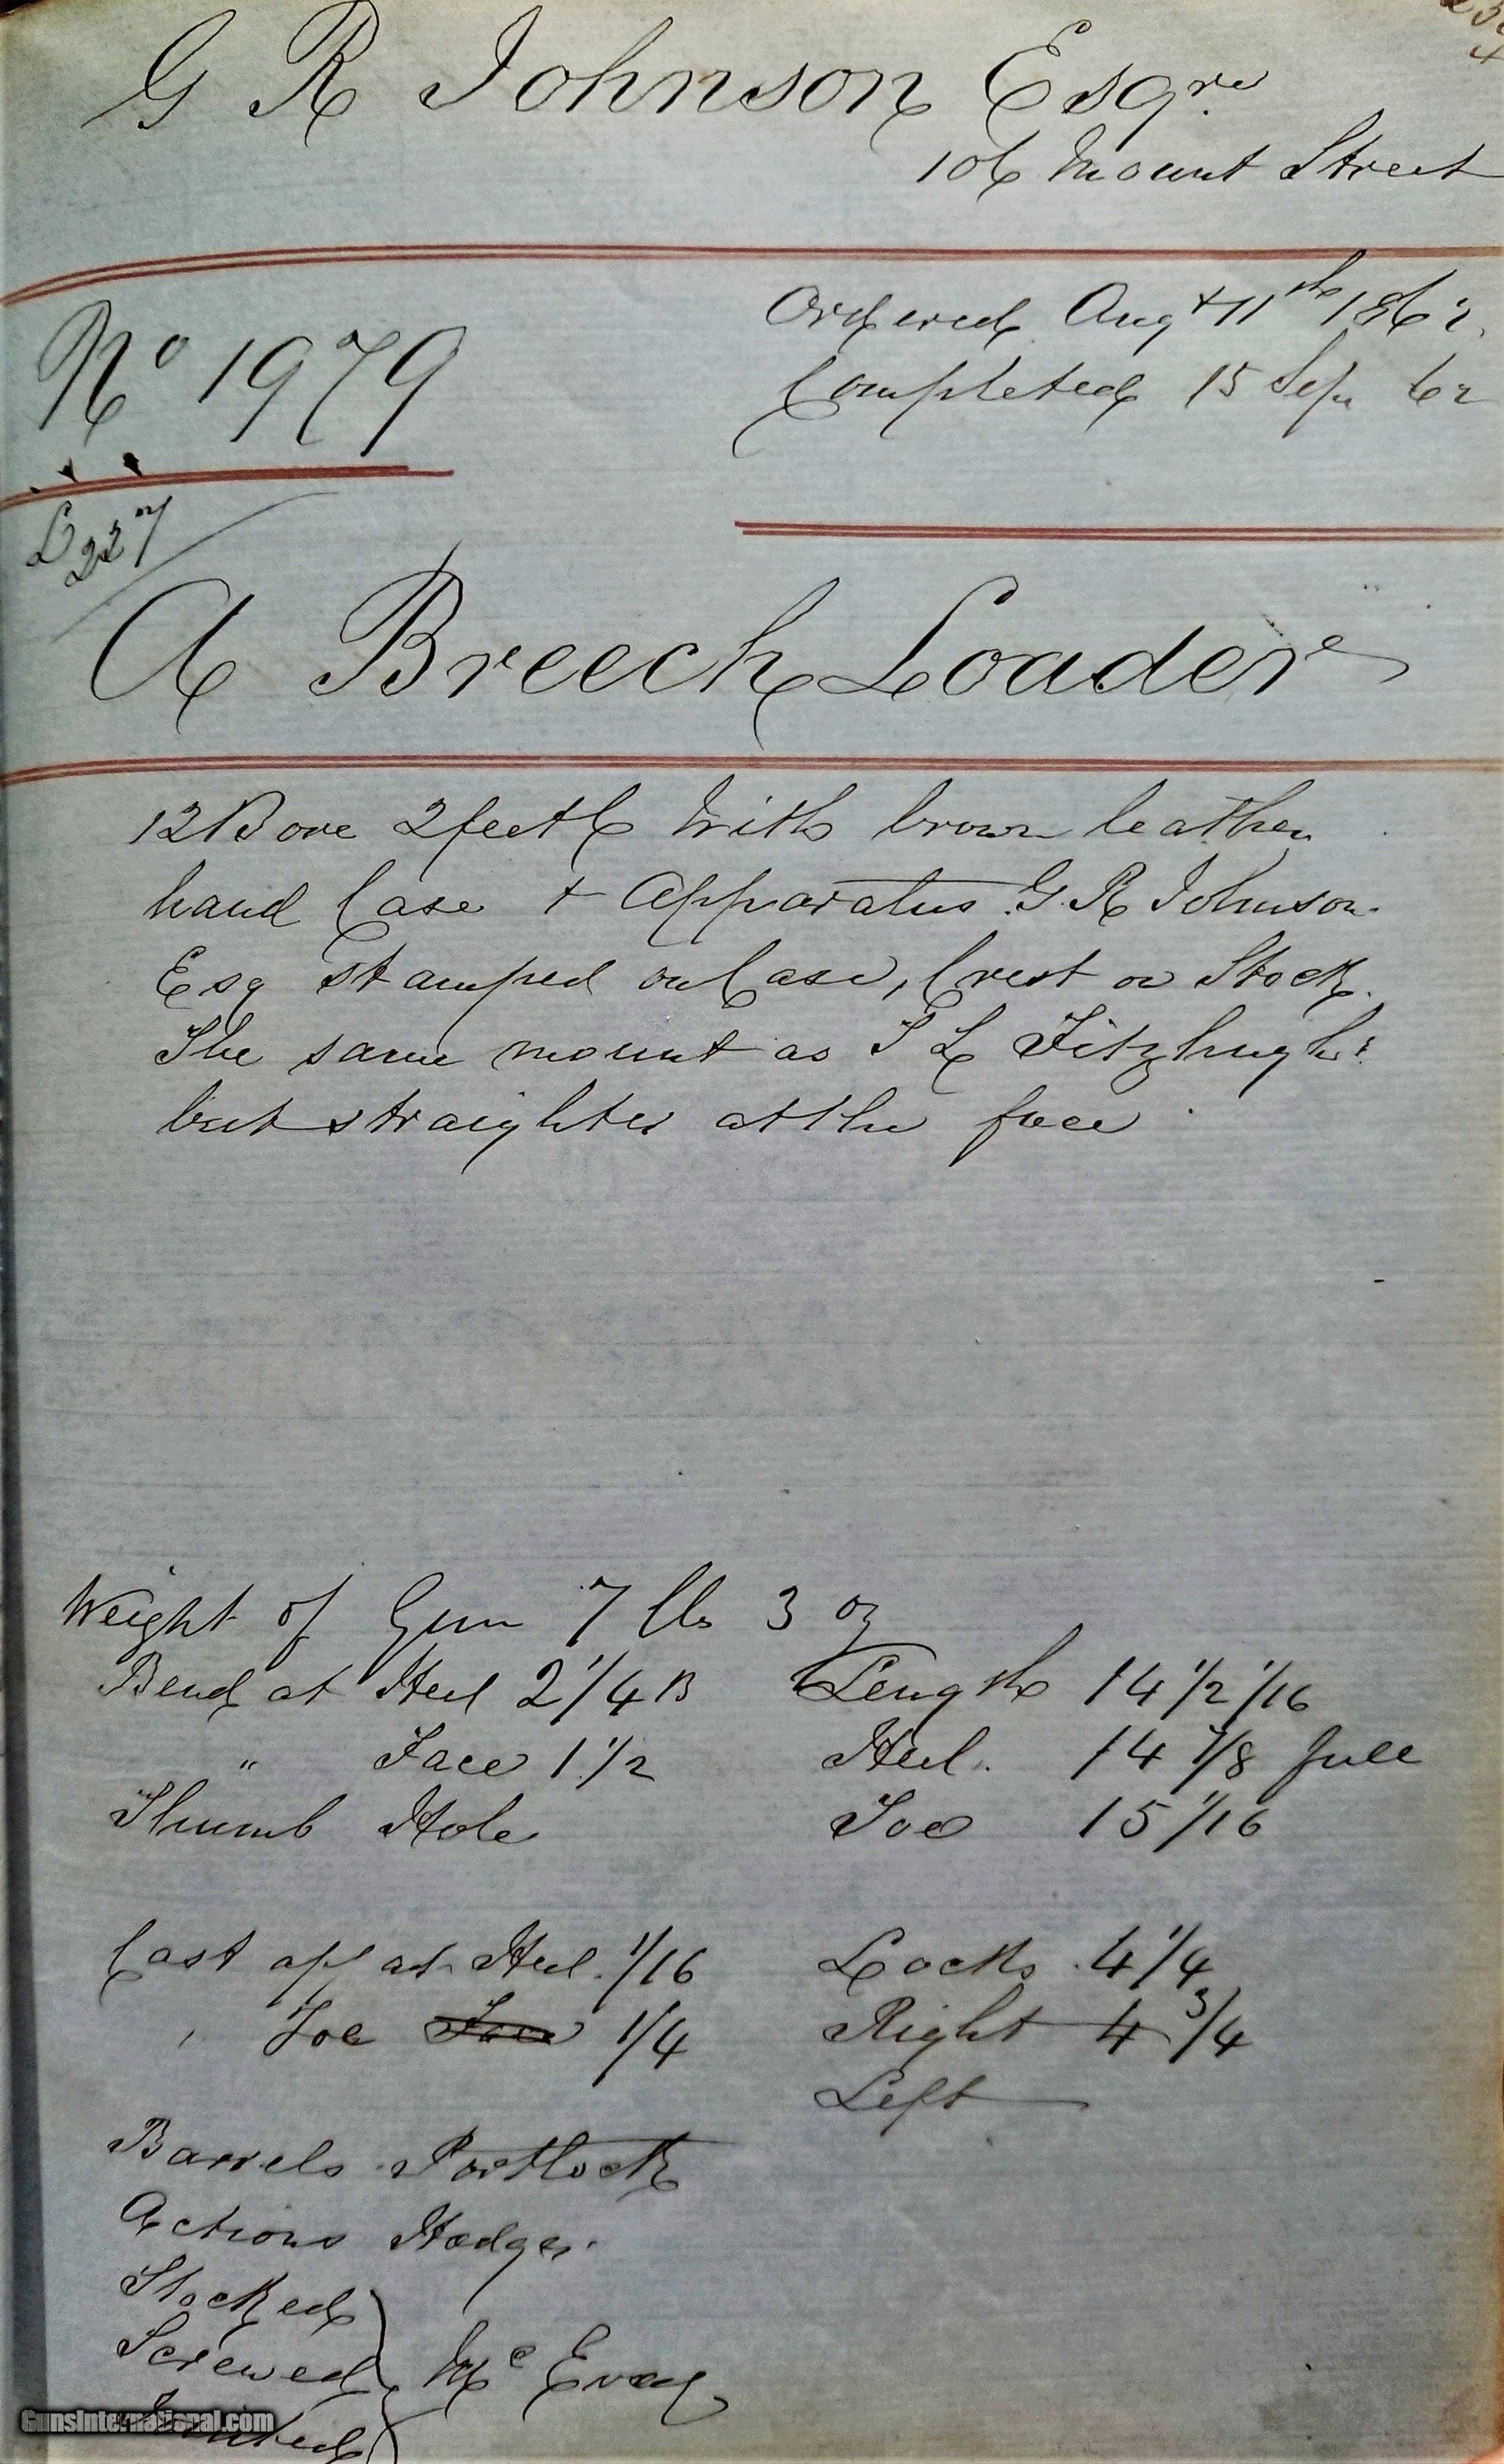 G R Johnson Esqre
106 Mount Street
No 1979
Ordered Augt 11th 1862
Completed 15 Sep 62
L 227
A Breech Loader
12 Bore 2 feet 6 With brown leather
hand Case + Apparatus G. R Johnson
Esq stamped on Case, Crest on Stock.
The same mount as T L Fitzhugh's
but straighter at the face
Weight of Gun 7 lbs 3 oz
Bend at Heel 2 1/4 B Length 14 1/2 1/16
" Face 1 1/2 Heel. 14 7/8 full
Thumb Hole Toe 15 1/16
Cast off at Heel. 1/16 Locks 4 1/4
" Toe Face 1/4 Right 4 3/4
Left
Barrels Portlock
Actions Hodges
Stocked
Screwed Mc Evoy
GunsInternational.com